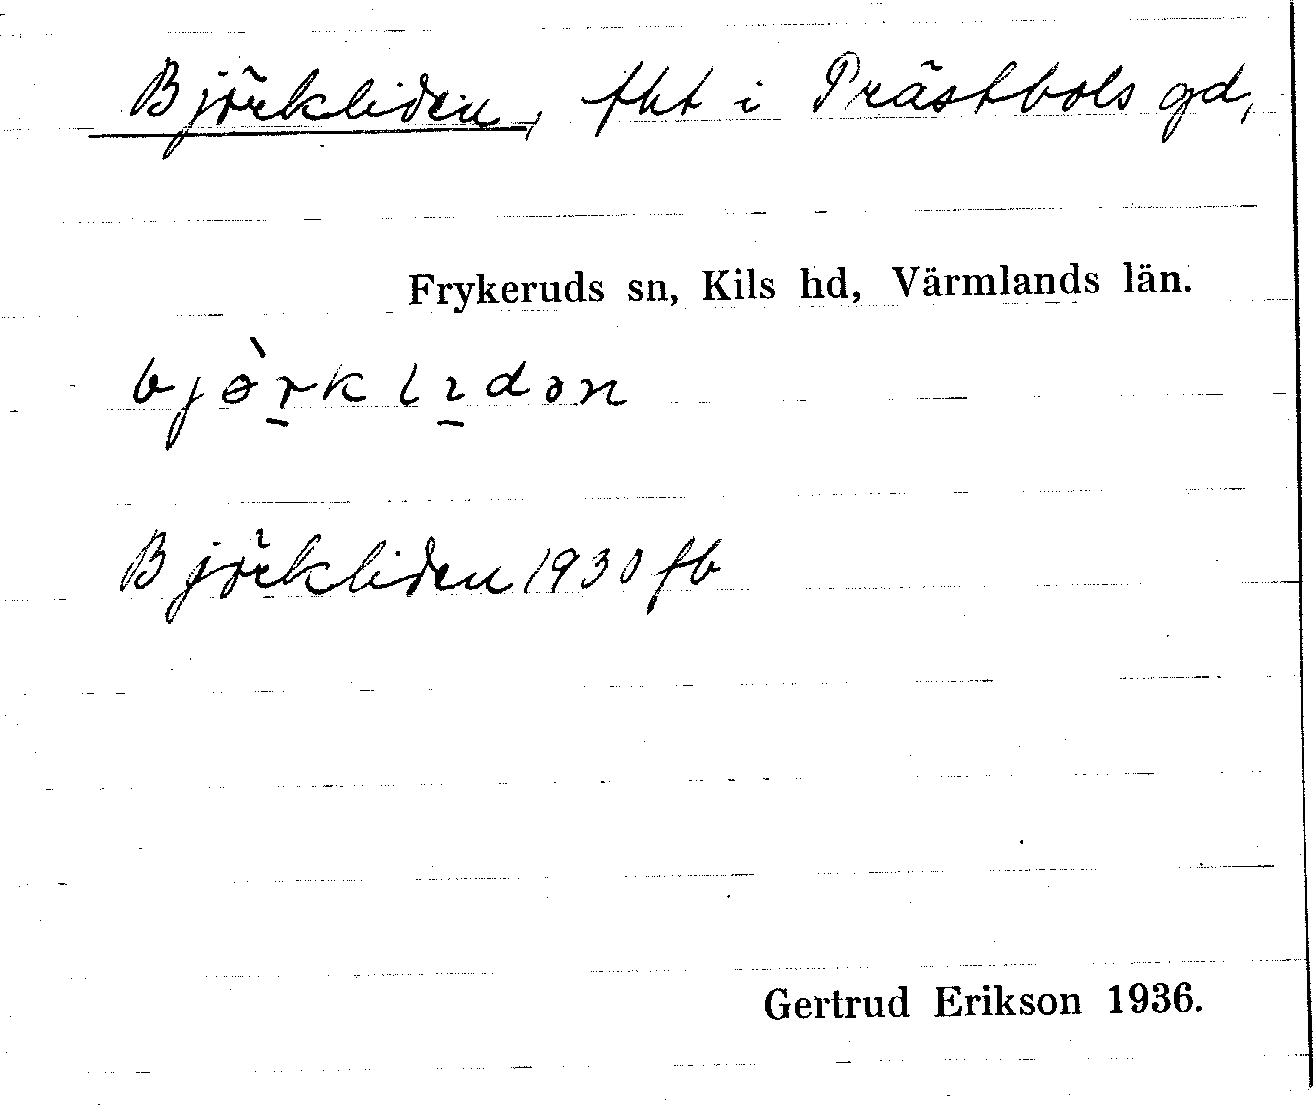 Björkliden, fht i Prästbols gd,
Frykeruds sn, Kils hd, Värmlands län.
bjɵ̀r̠klɪ̠dən
Björkliden 1930 fb
Gertrud Erikson 1936.